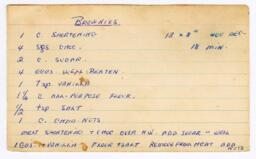 BROWNIES
1 C. SHORTENING 12 x 8"
4 SQS CHOC. 18 MIN.
2 C. SUGAR
4 EGGS WELL BEATEN
1 tsp VANILLA
1 1/2 C ALL-PURPOSE FLOUR
1/2 tsp SALT
1 C. CHPD NUTS
MELT SHORTENING & CHOC OVER H.W. ADD SUGAR - WELL
EGGS + VANILLA FLOUR & SALT REMOVE FROM HEAT ADD
NUTS